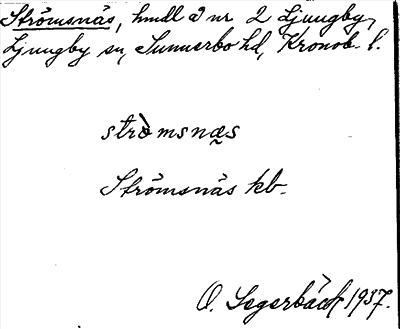 Strömsnäs, hmdl å nr 2 Ljungby,
Ljungby sn, Sunnerbo hd, Kronob. l.
stròmsnæs
Strömsnäs kb.
O. Segerbäck 1937.